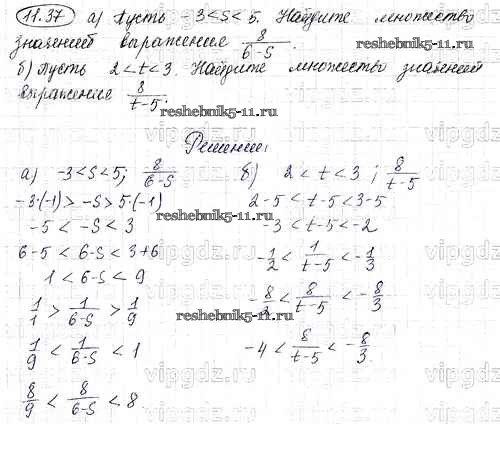 11.37 а) Пусть -3<s<5. Найдите множество
значений выражения 8/(6-s).
б) Пусть 2<t<3. Найдите множество значений
выражения 8/(t-5).
reshebnik5-11.ru
reshebnik5-11.ru
Решение:
а) -3<s<5; 8/(6-s)
-3·(-1)>-s>5·(-1)
-5<-s<3
6-5<6-s<3+6
1<6-s<9
1/1>1/(6-s)>1/9
1/9<1/(6-s)<1
8/9<8/(6-s)<8
б) 2<t<3; 8/(t-5)
2-5<t-5<3-5
-3<t-5<-2
-1/2<1/(t-5)<-1/3
-8/2<8/(t-5)<-8/3
-4<8/(t-5)<-8/3.
reshebnik5-11.ru
reshebnik5-11.ru
vipgdz.ru
vipgdz.ru
vipgdz.ru
vipgdz.ru